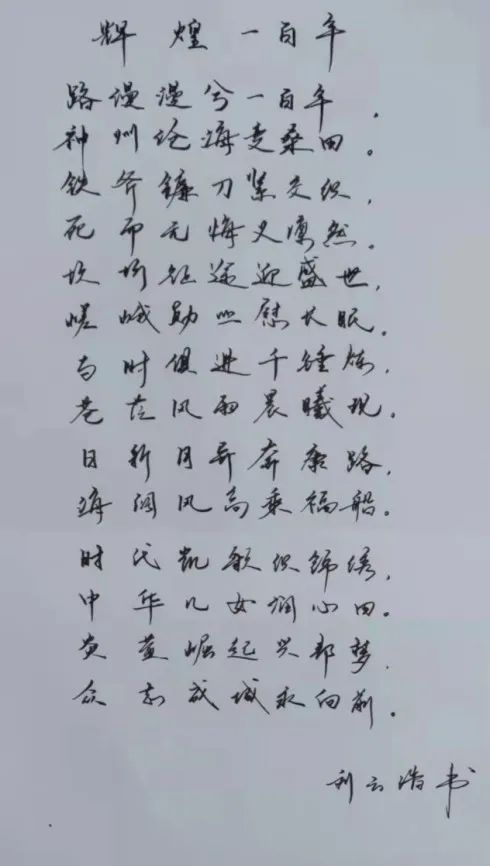 辉煌一百年
路漫漫兮一百年，
神州沧海变桑田。
铁斧镰刀紧交织，
死而无悔义凛然。
坎坷征途迎盛世，
嵯峨勋业慰长眠。
与时俱进千锤炼，
苍茫风雨晨曦现。
日新月异奔康路，
海阔风高乘福船。
时代凯歌织锦绣，
中华儿女润心田。
炎黄崛起兴邦梦，
众志成城永向前。
刘云浩书